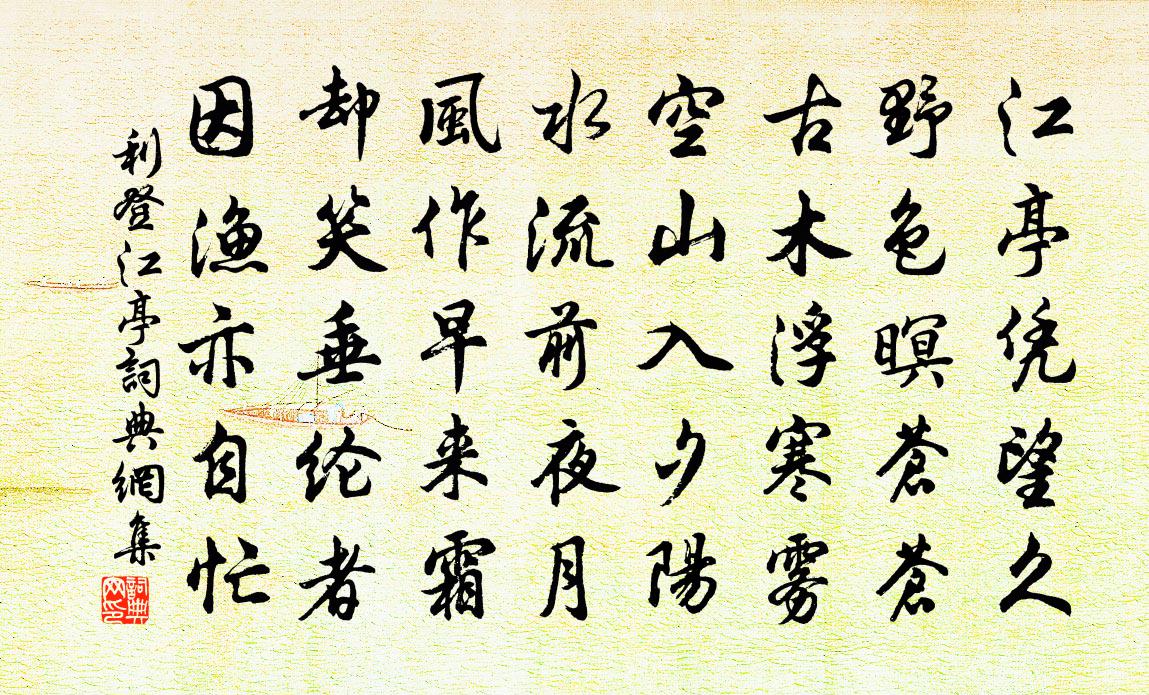 江亭凭望久
野色暝蒼蒼
古木浮寒雾
空山入夕陽
水流前夜月
風作早来霜
却笑垂纶者
因漁亦自忙
利登江亭詞典網集
詞典
网印